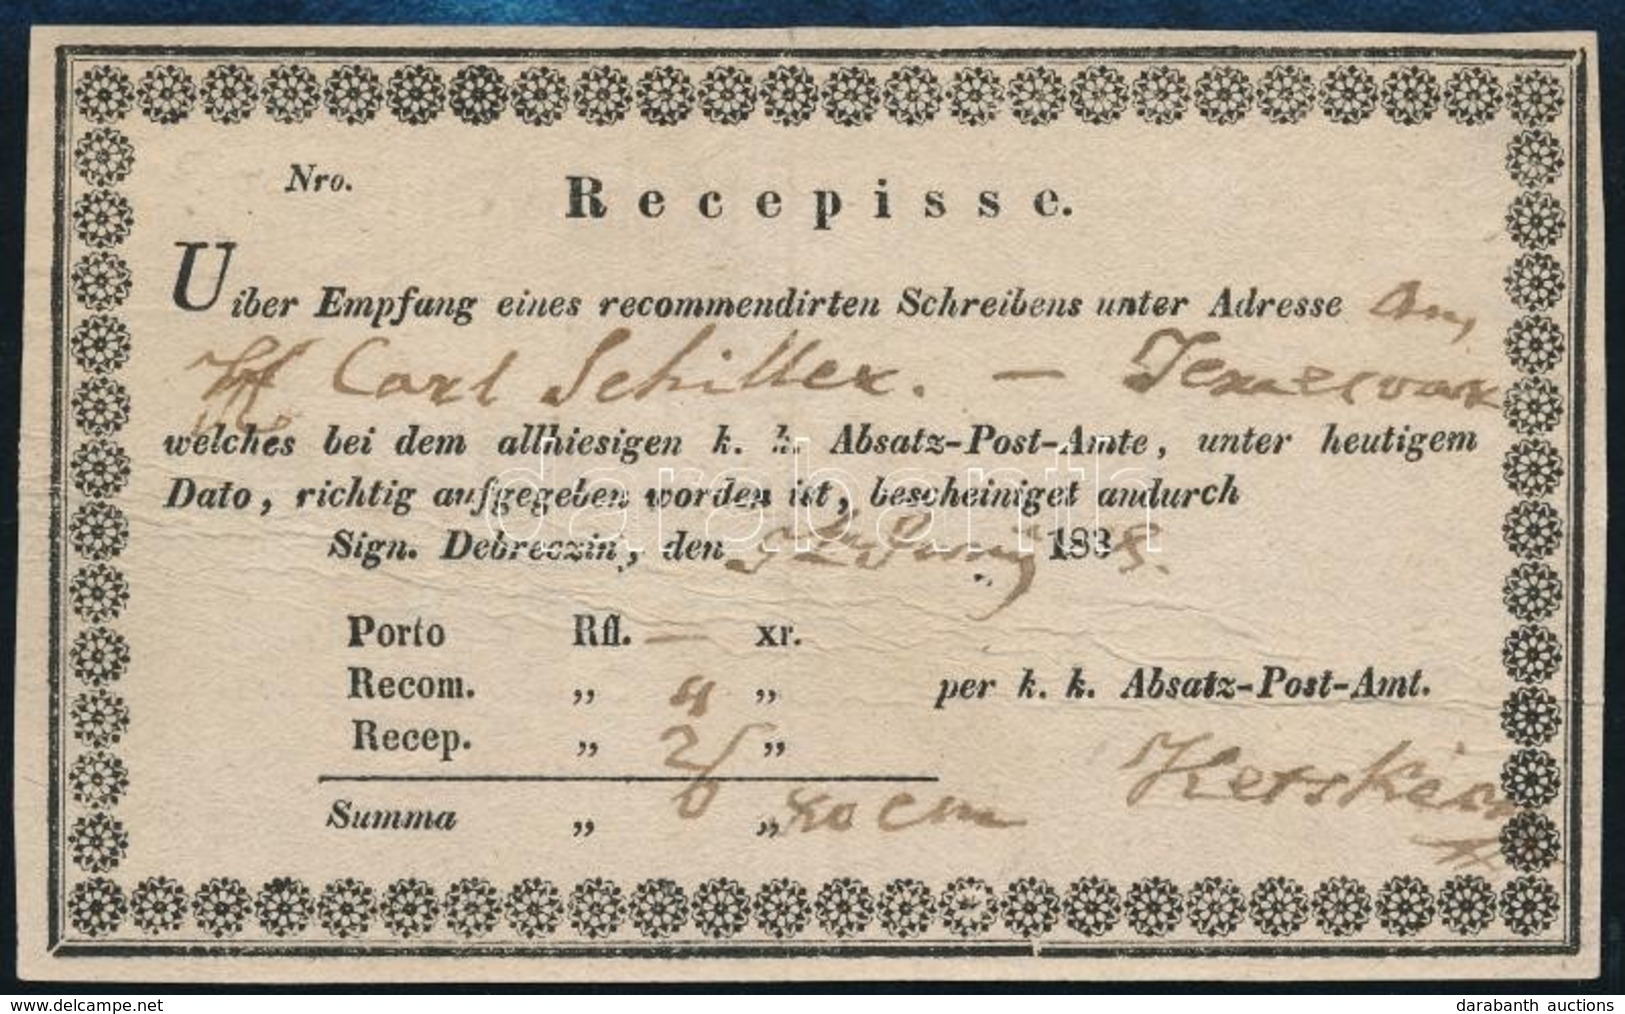 Nro. Recepisse.
Uiber Empfang eines recommendirten Schreibens unter Adresse An
Carl Schiller. — Temesvar
welches bei dem allhiesigen k. k. Absatz-Post-Amte, unter heutigem
Dato, richtig aufgegeben worden ist, bescheiniget andurch
Sign. Debreczin, den Juny 1838.
Porto Rfl. — xr.
Recom. „ 4 „
Recep. „ 2 „ per k. k. Absatz-Post-Amt.
Summa „ 6 „ xo cm
darabanth
www.delcampe.net
darabanth auctions